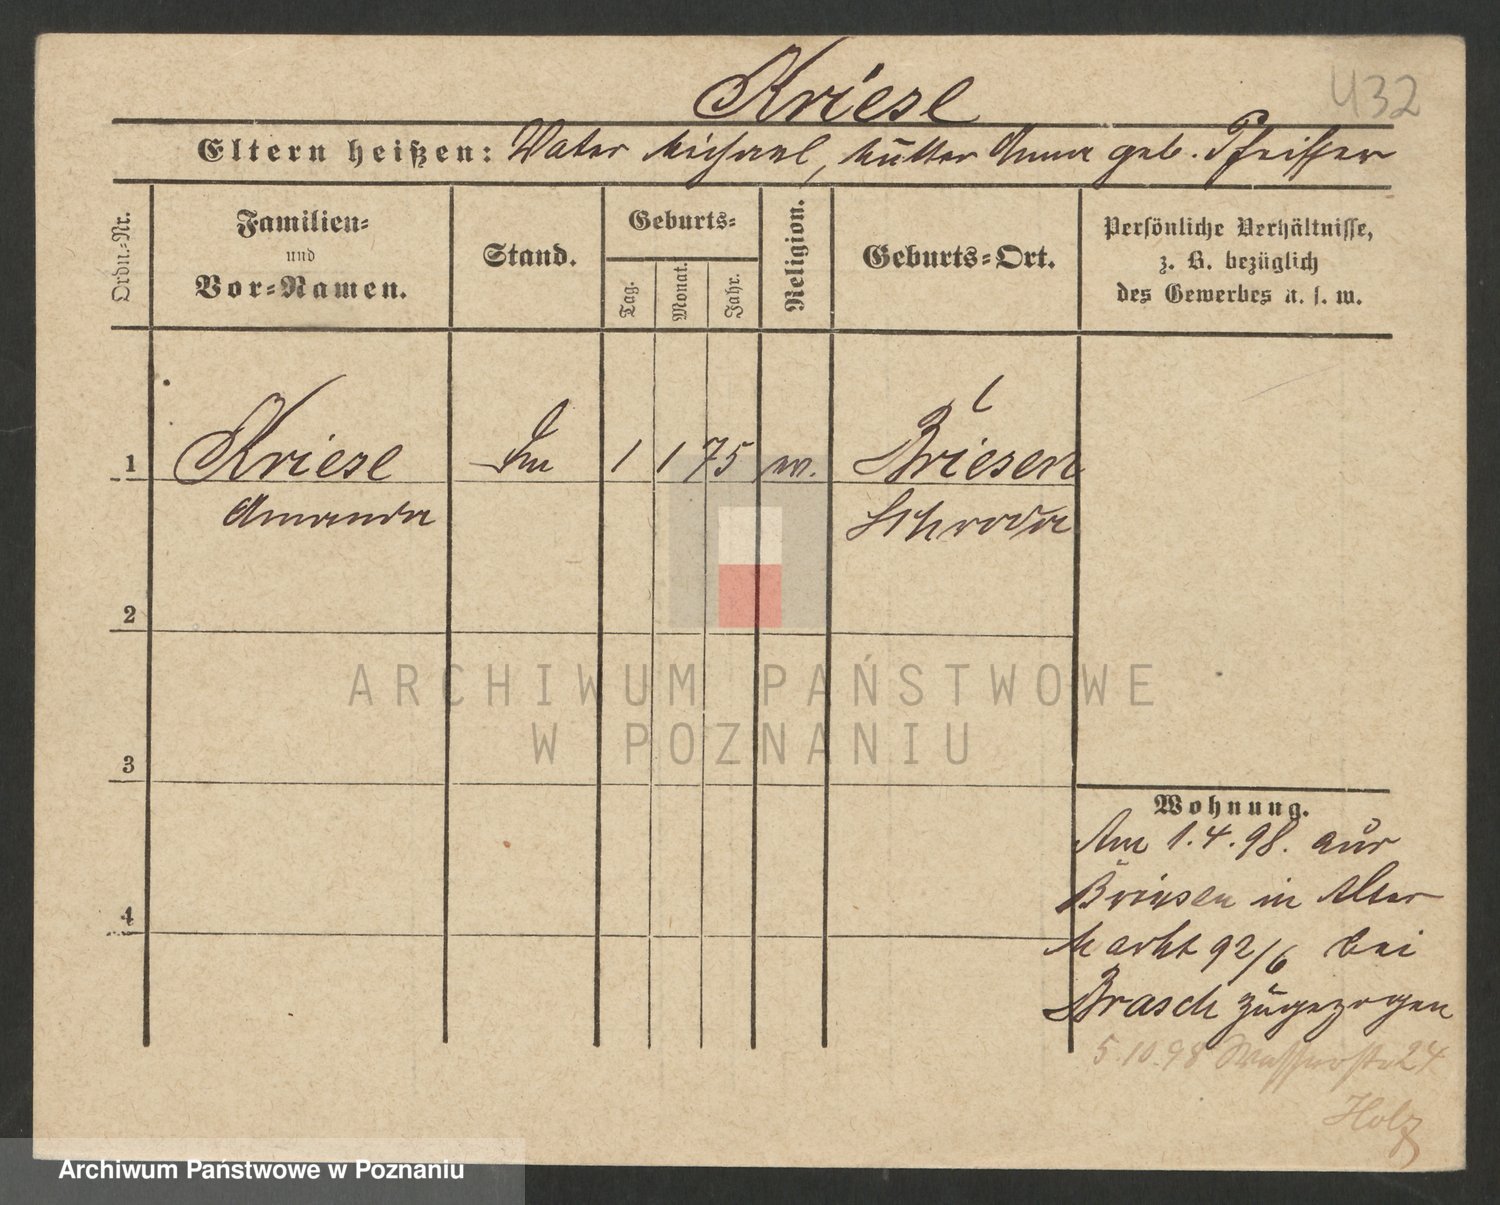 Kriese
432
Eltern heißen: Vater Michael, Mutter Anna geb. Pfeiffer
Ordn.-Nr.
Familien- und Vor-Namen.
Stand.
Geburts-
Tag.
Monat.
Jahr.
Religion.
Geburts-Ort.
Persönliche Verhältnisse,
z. B. bezüglich
des Gewerbes u. s. w.
1 Kriese 1 1 75 Briesen
Amanda Schroda
2
3
4
Wohnung.
Am 1.4.98. aus
Briesen in Alter
Markt 92/6 bei
Brasch zugezogen
5.10.98 Wasserstr 24
Holz
ARCHIWUM PAŃSTWOWE
W POZNANIU
Archiwum Państwowe w Poznaniu